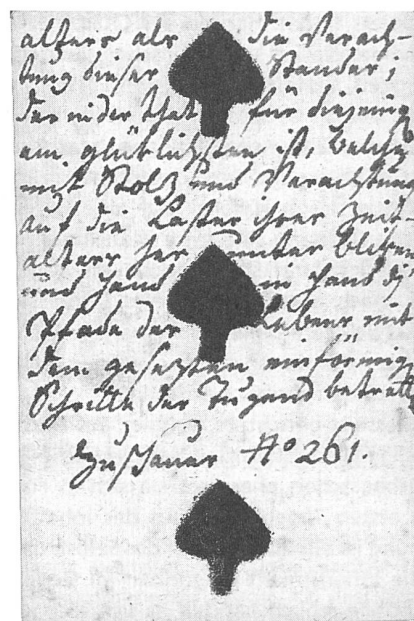 alters als die Verach-
tung dieser Standes;
der in der That für diejenig
am glüklichsten ist, welche
mit Stolz und Verachtung
auf die Laster ihrer Zeit-
alters herunter bliken
und Hand in Hand di
Pfade der Lebens mit
dem gesezten einförmig
Schritte der Tugend betrett
Zuschauer No 261.